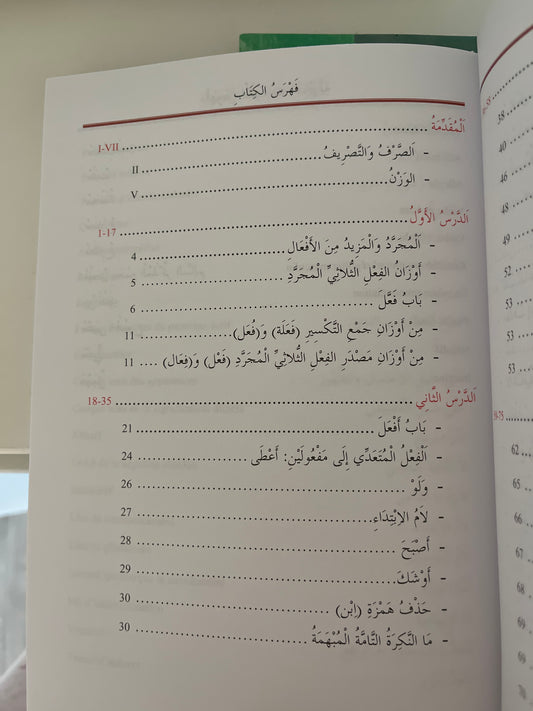 فَهْرَسُ الكِتَابِ
اَلْمُقَدِّمَةُ ........ J-VII
- اَلصَّرْفُ وَالتَّصْرِيفُ ........ II
- الوَزْنُ ........ V
اَلدَّرْسُ الأَوَّلُ ........ 1-17
- اَلْمُجَرَّدُ وَالْمَزِيدُ مِنَ الأَفْعَالِ ........ 4
- أَوْزَانُ الفِعْلِ الثُّلاَثِيِّ الْمُجَرَّدِ ........ 5
- بَابُ فَعَّلَ ........ 6
- مِنْ أَوْزَانِ جَمْعِ التَّكْسِيرِ (فَعَلَة) وَ(فُعَل) ........ 11
- مِنْ أَوْزَانِ مَصْدَرِ الفِعْلِ الثُّلاَثِيِّ الْمُجَرَّدِ (فَعْل) وَ(فِعَال) .... 11
اَلدَّرْسُ الثَّانِي ........ 18-35
- بَابُ أَفْعَلَ ........ 21
- اَلْفِعْلُ الْمُتَعَدِّي إِلَى مَفْعُولَيْنِ: أَعْطَى ........ 24
- وَلَوْ ........ 26
- لاَمُ الاِبْتِدَاءِ ........ 27
- أَصْبَحَ ........ 28
- أَوْشَكَ ........ 29
- حَذْفُ هَمْزَةِ (اِبْن) ........ 30
- مَا النَّكِرَةُ التَّامَّةُ الْمُبْهَمَةُ ........ 30
38
40
46
48
49
52
53
53
53
62
65
66
67
68
69
69
70